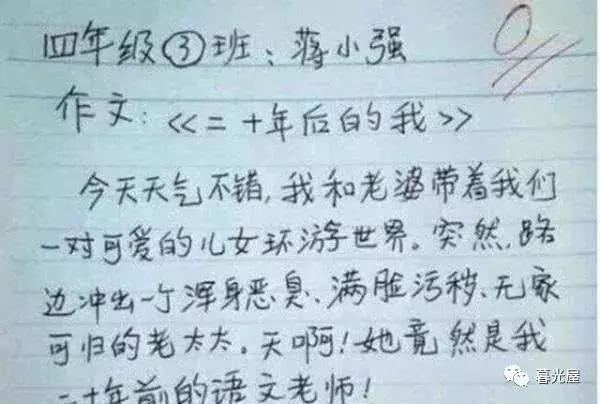 四年级③班：蒋小强
0
作文：<<二十年后的我>>
今天天气不错，我和老婆带着我们
一对可爱的儿女环游世界。突然，路
边冲出一个浑身恶臭、满脸污秽、无家
可归的老太太。天啊！她竟然是我
二十年前的语文老师！
暮光屋